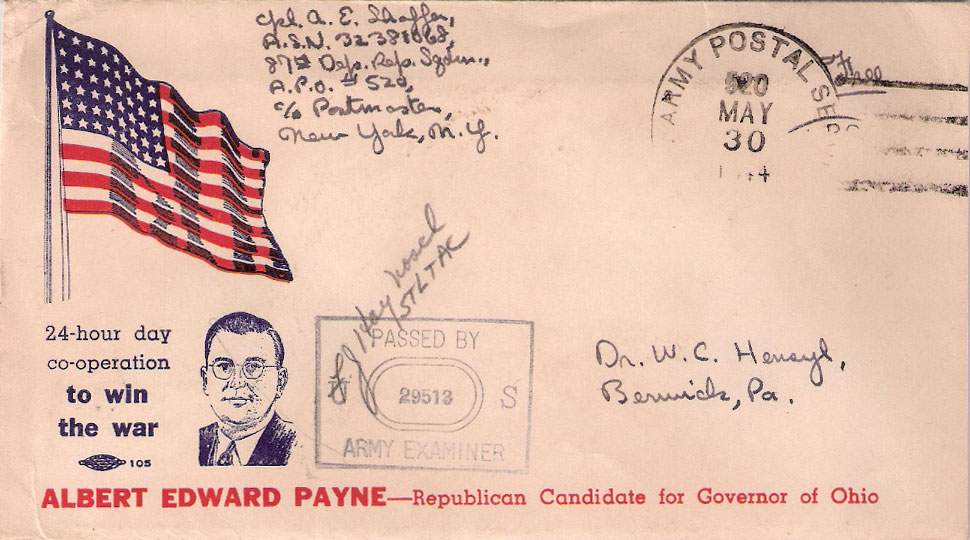 Cpl. A. E. Shaffer,
A.S.N. 32381068,
87th Dep. Rep. Sqdn.,
A.P.O. # 520,
c/o Postmaster,
New York, N.Y.
Free
ARMY POSTAL SER
520
MAY
30
1944
24-hour day
co-operation
to win
the war
105
PASSED BY
29513 S
ARMY EXAMINER
Dr. W. C. Hensyl,
Berwick, Pa.
ALBERT EDWARD PAYNE—Republican Candidate for Governor of Ohio